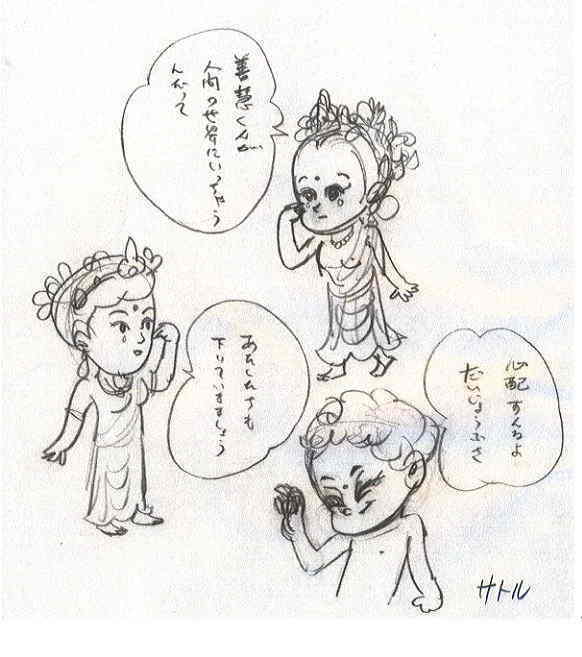 善慧くんが
人間の世界にいっちゃう
んだって
あたしたちも
下りていきましょう
心配すんなよ
だいじょうぶさ
サトル